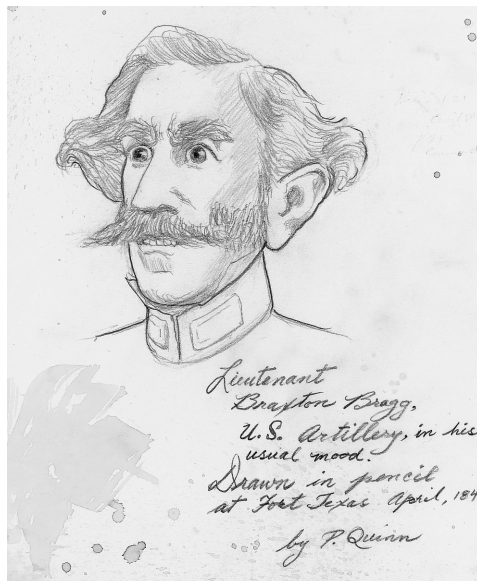 Lieutenant
Braxton Bragg,
U.S. Artillery, in his
usual mood.
Drawn in pencil
at Fort Texas April, 184
by P. Quinn